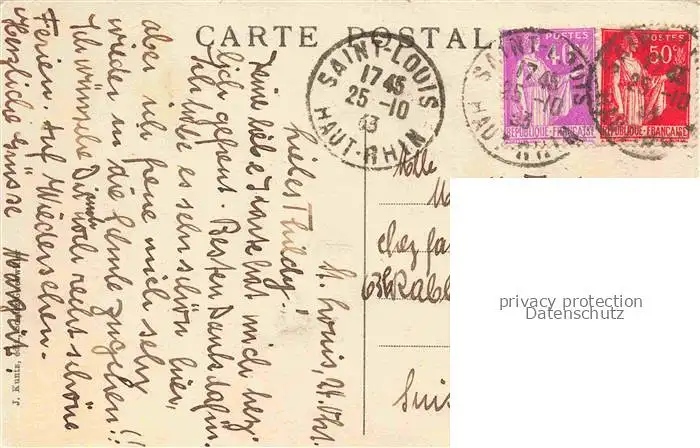 CARTE POSTALE
SAINT-LOUIS
17 45
25 -10
33
HAUT-RHIN
SAINT-LOUIS
17 45
25 -10
33
HAUT-RHIN
POSTES
40c
RÉPUBLIQUE FRANÇAISE
POSTES
50c
RÉPUBLIQUE FRANÇAISE
St. Louis, 24. Okt.
Liebes Thildy!
Deine liebe Karte hat mich herz-
lich gefreut. Besten Dank dafür.
Ich habe es sehr schön hier,
aber ich freue mich sehr
wieder in die Schule zugehen!!
Ich wünsche Dir auch noch recht schöne
Ferien. Auf Wiedersehen.
Herzliche Grüsse
Mlle
chez
Suis
J. Kuntz,
privacy protection
Datenschutz